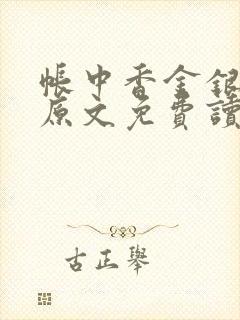 帳中香金銀
原文免費讀
古正舉